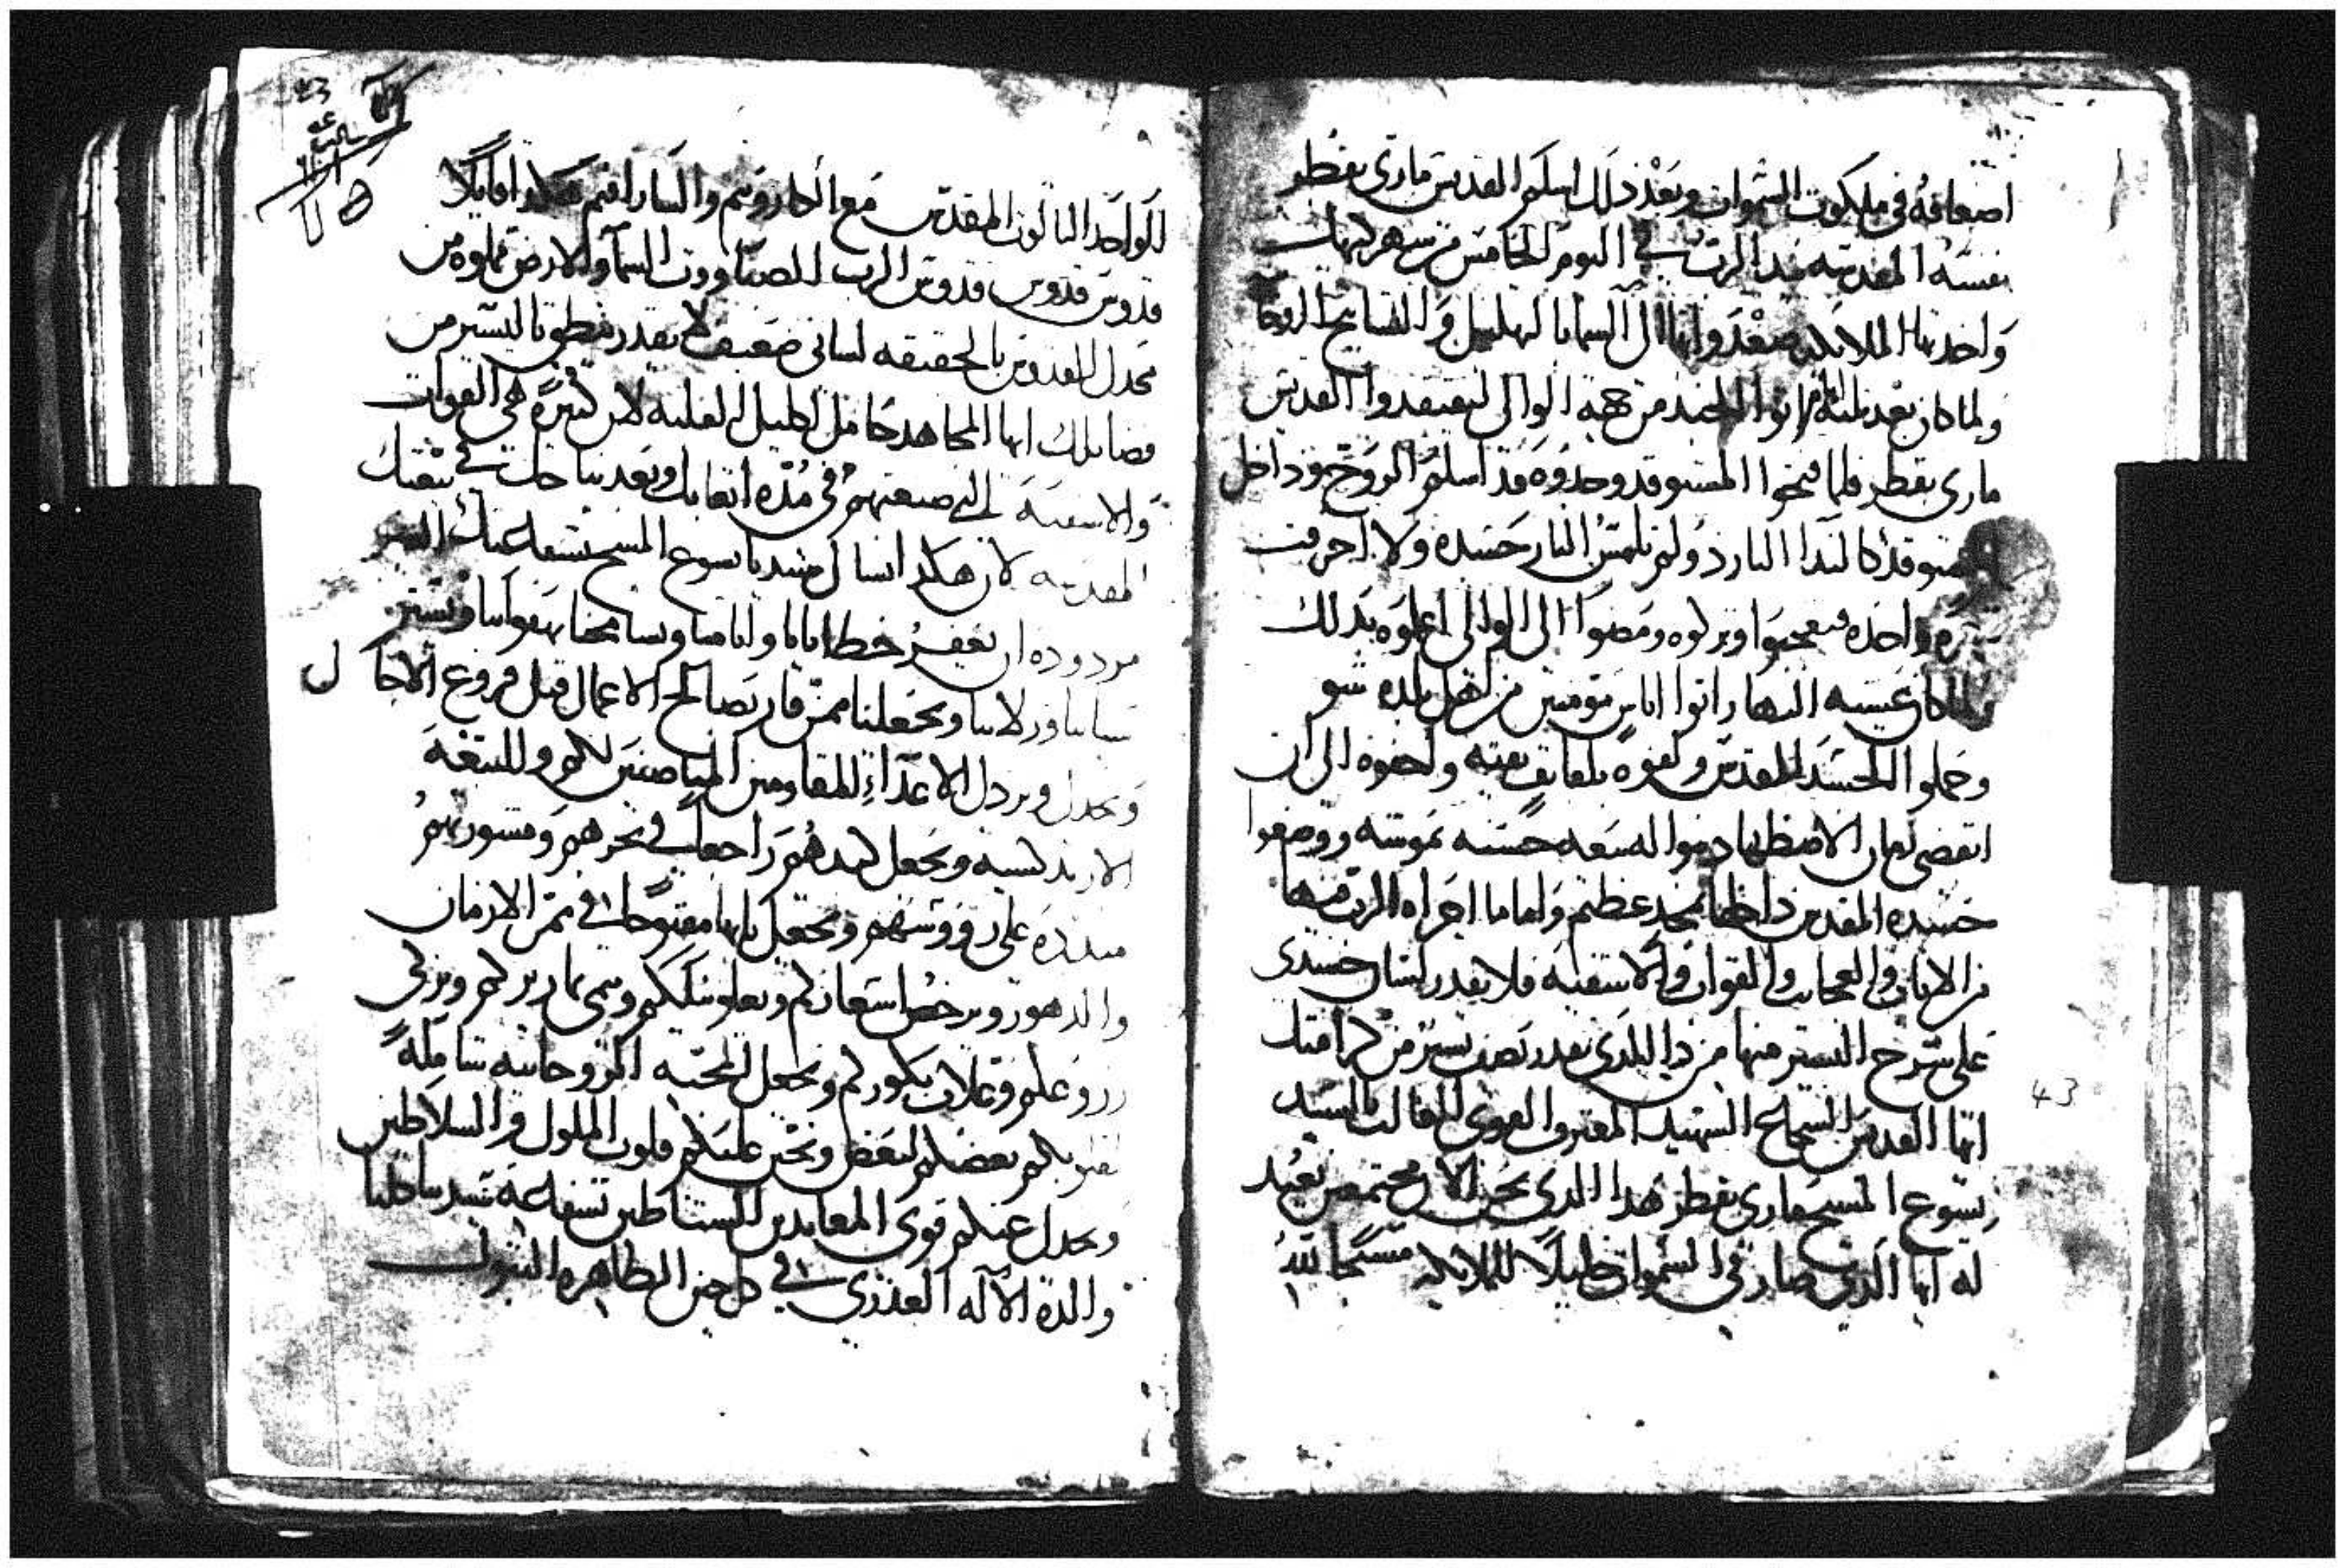 اضعافه في ملكوت السموات وبعد ذلك اسلم القديس ماري بقطر
نفسه المقدسه بيد الرب في اليوم الخامس من شهر كيهك
واخدتها الملايكه وصعدوا بها الى السما بالتهليل والتسابيح الروحا
ولما كان بعد تلته ايام اتوا الجند من جهه الوالي ليفتقدوا القديس
ماري بقطر فلما فتحوا المستوقد وجدوه قد اسلم الروح من داخل
المستوقد كالندا البارد ولم تلمس النار جسده ولا احرقت
شعره واحده فتعجبوا وتركوه ومضوا الى الوالي اعلموه بذلك
ولما كان عشيه النهار اتوا اناس مومنين من اهل بلده شو
وحملوا الجسد المقدس وكفنوه بلفايف نقيه واخفوه الى ان
انقضى زمان الاضطهاد وبنوا له بيعه حسنه بموشه ووضعوا
جسده المقدس داخلها بمجد عظيم واما ما اجراه الرب منها
من الايات والعجايب والقوات والاشفيه فلا يقدر لسان جسدي
على شرح اليسير منها من ذا الذي يقدر يصف يسير من كرامتك
ايها القديس الشجاع الشهيد المعترف القوي الغالب بالسيد
يسوع المسيح ماري بقطر هدا الدي نحن الان مجتمعين نعيد
له ايها الذي صار في السموات خليلا للملايكه مسبحا لله
43
الواحد التالوت المقدس مع الكاروبيم والسارافيم هكدا قايلا
قدوس قدوس قدوس الرب الصباووت السما والارض مملوه من
مجدك القدوس بالحقيقه لساني ضعيف لا يقدر ينطق باليسير من
فضايلك ايها المجاهد حامل اكليل الغلبه لان كتيرة هي القوات
والاشفيه التي صنعتهم في مده اتعابك وبعد نياحك في بيعتك
المقدسه لان هكدا نسال سيدنا يسوع المسيح بشفاعتك الغير
مردوده ان يغفر خطايانا واتامنا ويسامحنا بهفواتنا ويستر
سياتنا وزلاتنا ويجعلنا ممن فاز بصالح الاعمال قبل فروغ الاجال
ويخدل ويردل الاعداء المقاومين المناصبين لكم وللبيعه
الارتدكسيه ويجعل كيدهم راجعا في نحرهم ومشورتهم
مبدده على رووسهم ويجعل بابها مفتوحا في ممر الازمان
والدهور ويرخص اسعاركم ويعلو نيلكم وينمي تماركم ويزكي
زروعكم وغلات بكوركم ويجعل المحبه الروحانيه شامله
لقلوبكم بعضكم لبعض ويحنن عليكم قلوب الملوك والسلاطين
ويخدل عنكم قوى المعاندين الشياطين بشفاعه سيدتنا كلنا
والدة الاله العذرى في كل حين الطاهره البتول